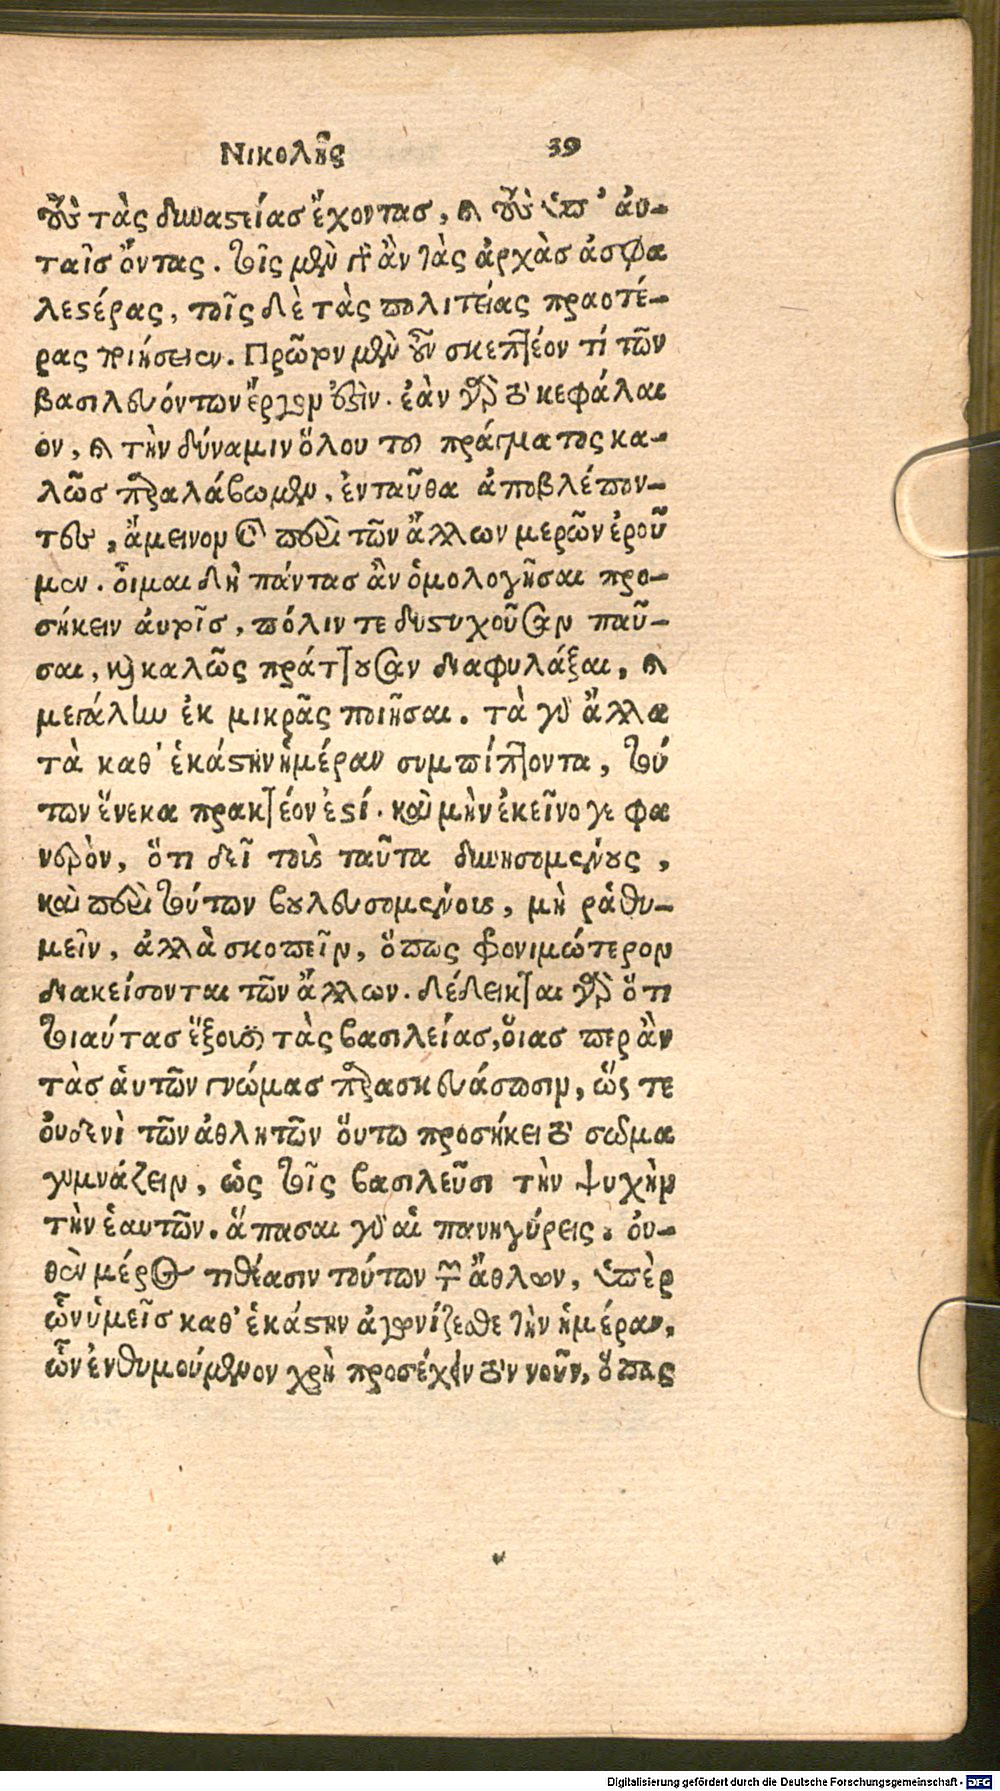 Νικοκλῆς 39
τοὺς τὰς δυναστείας ἔχοντας, καὶ τοὺς ὑπ' ἀυ-
ταῖσ ὄντας. τοῖς μὲν γὰρ ἂν τὰς ἀρχὰσ ἀσφα
λεστέρας, τοῖς δὲ τὰς πολιτείας πραοτέ-
ρας ποιήσειεν. Πρῶτον μὲν οὖν σκεπτέον τί τῶν
βασιλευόντων ἔργον ἐστὶν. ἐὰν γὰρ τὸ κεφάλαι
ον, καὶ τὴν δύναμιν ὅλου τοῦ πράγματος κα-
λῶσ παραλάβωμεν, ἐνταῦθα ἀποβλέπον-
τες, ἄμεινον καὶ περὶ τῶν ἄλλων μερῶν ἐροῦ
μεν. οἶμαι δὴ πάντασ ἂν ὁμολογῆσαι προ-
σήκειν ἀυτοῖσ, πόλιν τε δυστυχοῦσαν παῦ-
σαι, καὶ καλῶς πράττουσαν διαφυλάξαι, καὶ
μεγάλην ἐκ μικρᾶς ποιῆσαι. τὰ γὰρ ἄλλα
τὰ καθ' ἑκάστην ἡμέραν συμπίπτοντα, τού
των ἕνεκα πρακτέον ἐστί. καὶ μὴν ἐκεῖνο γε φα
νερὸν, ὅτι δεῖ τοὺς ταῦτα δυνησομένους,
καὶ περὶ τούτων βουλευσομένους, μὴ ῥᾳθυ-
μεῖν, ἀλλὰ σκοπεῖν, ὅπως φρονιμώτερον
διακείσονται τῶν ἄλλων. δέδεικται γὰρ ὅτι
τοιαύτας ἕξουσι τὰς βασιλείας, ὅιασ περ ἂν
τὰσ ἁυτῶν γνώμασ παρασκευάσωσιν, ὥς τε
ὀυδενὶ τῶν ἀθλητῶν ὅυτω προσήκει τὸ σῶμα
γυμνάζειν, ὡς τοῖς βασιλεῦσι τὴν ψυχὴν
τὴν ἑαυτῶν. ἅπασαι γὰρ αἱ πανηγύρεις. ὀυ-
θὲν μέρος τιθέασιν τούτων τῶν ἄθλων, ὑπὲρ
ὧν ὑμεῖσ καθ' ἑκάστην ἀγωνίζεσθε τὴν ἡμέραν,
ὧν ἐνθυμούμενον χρὴ προσέχειν τὸν νοῦν, ὅπως
Digitalisierung gefördert durch die Deutsche Forschungsgemeinschaft - DFG